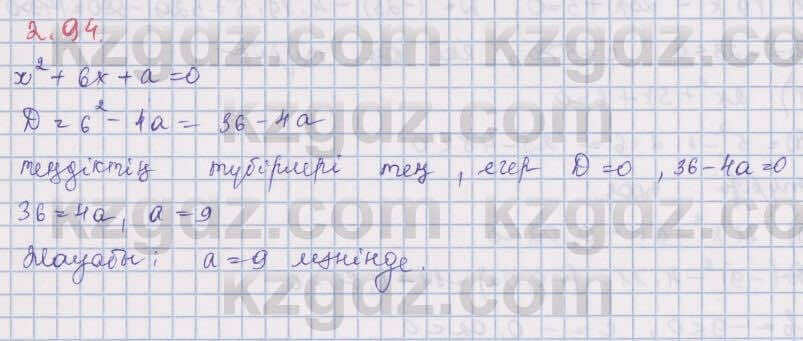 2.94.
x² + 6x + a = 0
D = 6² - 4a = 36 - 4a
теңдіктің түбірлері тең, егер D = 0, 36 - 4a = 0
36 = 4a, a = 9
Жауабы: a = 9 мәнінде.
kzgdz.com
kzgdz.com
kzgdz.com
kzgdz.com